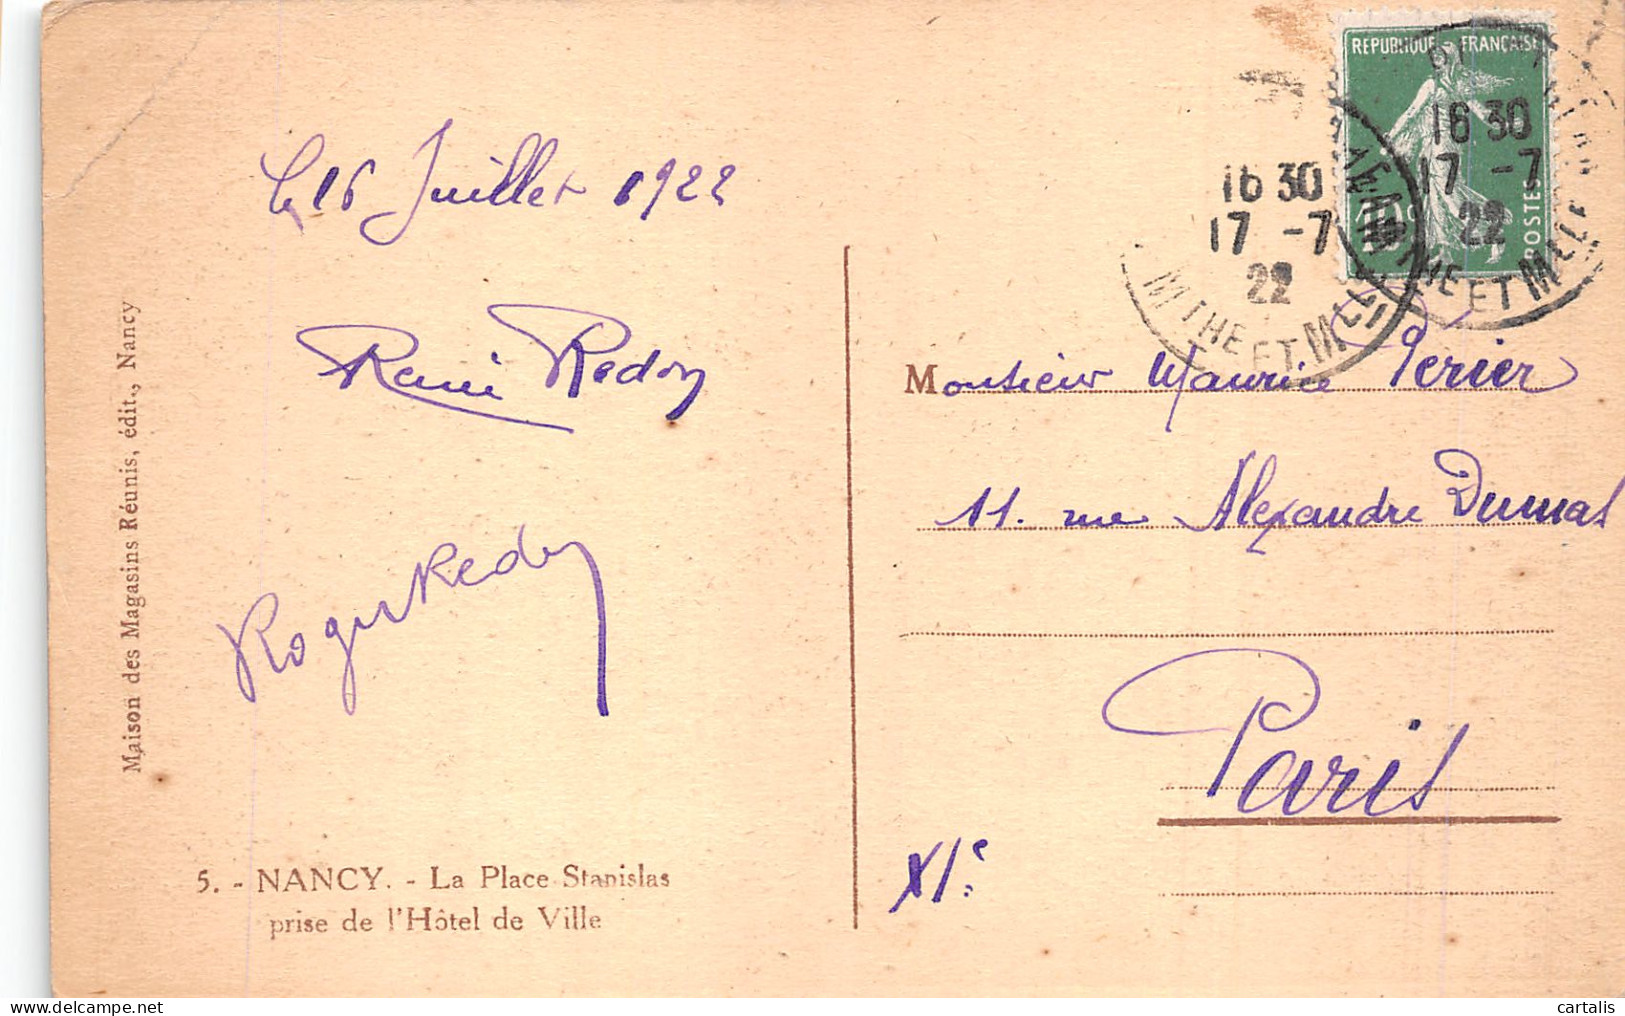 Le 16 Juillet 1922
René Redon
Roger Redon
Maison des Magasins Réunis, édit., Nancy
5. - NANCY. - La Place Stanislas
prise de l'Hôtel de Ville
REPUBLIQUE FRANÇAISE
POSTES
10c
16 30
17 -7
22
MTHE ET MLLE
16 30
17 -7
22
MTHE ET MLLE
Monsieur Maurice Perier
11. rue Alexandre Dumas
Paris
XIe
cartalis